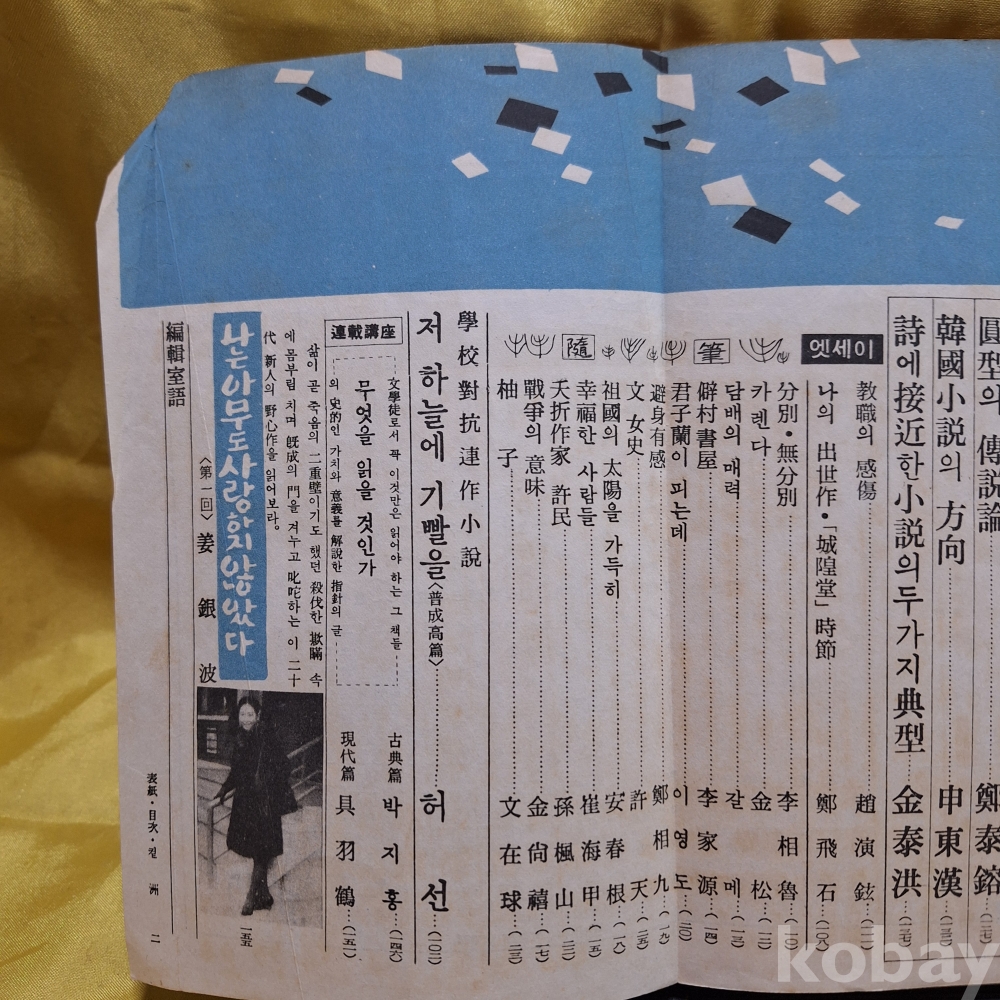 圓型의 傳説論 鄭泰鎔
韓國小説의 方向 申東漢
詩에 接近한 小説의 두가지 典型 金泰洪
엣세이
教職의 感傷 趙演鉉
나의 出世作·「城隍堂」時節 鄭飛石
隨筆
分別·無分別 李相魯
카렌다 金松
담배의 매력
僻村書屋 李家源 (一四)
君子蘭이 피는데 이영도
避身有感 鄭相九 (一九)
文女史 許天
祖國의 太陽을 가득히 安春根 (一八)
幸福한 사람들 崔海甲 (一五)
夭折作家 許民 孫楓山
戰爭의 意味 金尙禧 (一七)
柚子 文在球
學校對抗連作小說
저 하늘에 기빨을 〈普成高篇〉 허선 (一〇三)
連載講座
文學徒로서 꼭 이것만은 읽어야 하는 그 책들
무엇을 읽을 것인가
의 史的인 가치와 意義를 解說한 指針의 글
古典篇 박지홍 (一四六)
現代篇 具羽鶴 (一五一)
삶이 곧 죽음의 二重壁이기도 했던 殺伐한 欺瞞 속
에 몸부림 치며 旣成의 門을 겨누고 叱咤하는 이 二十
代 新人의 野心作을 읽어보라。
나는 아무도 사랑하지 않았다
〈第一回〉 姜銀波
一五五
編輯室語
表紙·目次·컽 洲
二
kobay